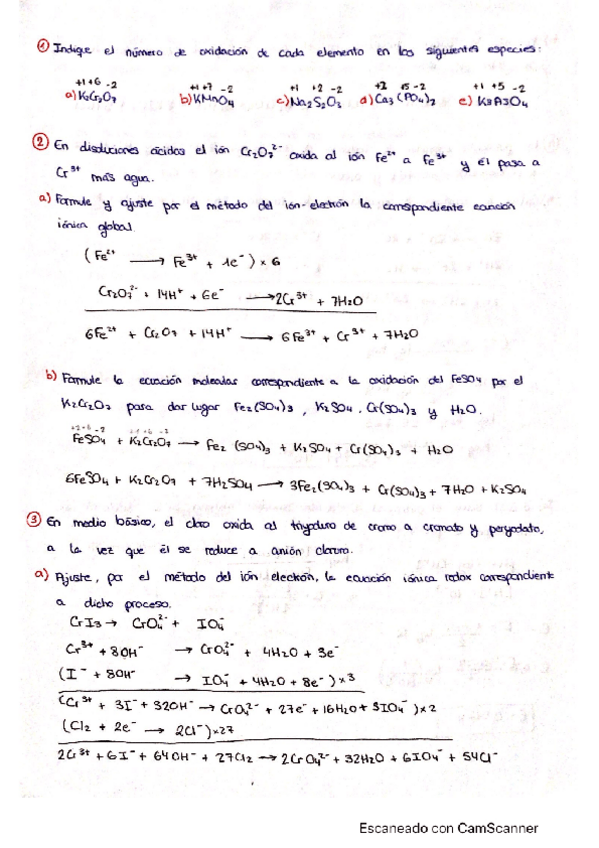 ① Indique el número de oxidación de cada elemento en las siguientes especies:
+1 +6 -2   +1 +7 -2   +1 +2 -2   +2 +5 -2   +1 +5 -2
a) K2Cr2O7   b) KMnO4   c) Na2S2O3   d) Ca3(PO4)2   e)
② En disoluciones ácidas el ión Cr2O7²⁻ oxida al ión Fe²⁺ a Fe³⁺ y él pasa a
Cr³⁺ más agua.
a) Formule y ajuste por el método del ion-electrón la correspondiente ecuación
iónica global.
(Fe²⁺ → Fe³⁺ + 1e⁻) × 6
Cr2O7²⁻ + 14H⁺ + 6e⁻ → 2Cr³⁺ + 7H2O
6Fe²⁺ + Cr2O7 + 14H⁺ → 6Fe³⁺ + Cr³⁺ + 7H2O
b) Formule la ecuación molecular correspondiente a la oxidación del FeSO4 por el
K2Cr2O7 para dar lugar Fe2(SO4)3, K2SO4, Cr(SO4)3 y H2O.
FeSO4 + K2Cr2O7 → Fe2(SO4)3 + K2SO4 + Cr(SO4)3 + H2O
6FeSO4 + K2Cr2O7 + 7H2SO4 → 3Fe2(SO4)3 + Cr(SO4)3 + 7H2O + K2SO4
③ En medio básico, el cloro oxida al triyoduro de cromo a cromato y peryodato,
a la vez que él se reduce a anión cloruro.
a) Ajuste, por el método del ión electrón, la ecuación iónica redox correspondiente
a dicho proceso.
CrI3 → CrO4²⁻ + IO4⁻
Cr³⁺ + 8OH⁻ → CrO4²⁻ + 4H2O + 3e⁻
(I⁻ + 8OH⁻ → IO4⁻ + 4H2O + 8e⁻) × 3
(Cr³⁺ + 3I⁻ + 32OH⁻ → CrO4²⁻ + 27e⁻ + 16H2O + 3IO4⁻) × 2
(Cl2 + 2e⁻ → 2Cl⁻) × 27
2Cr³⁺ + 6I⁻ + 64OH⁻ + 27Cl2 → 2CrO4²⁻ + 32H2O + 6IO4⁻ + 54Cl⁻
Escaneado con CamScanner